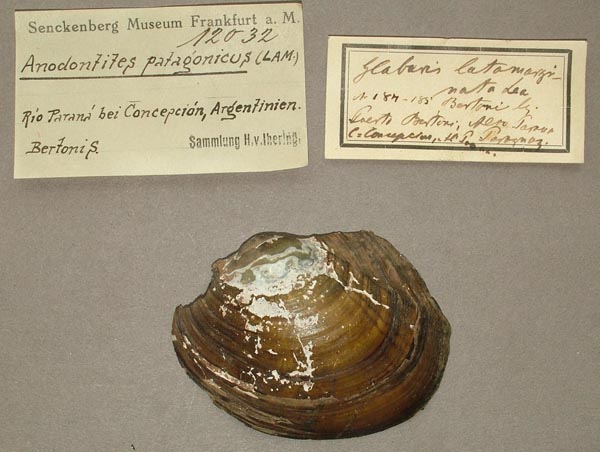 Senckenberg Museum Frankfurt a. M.
12032
Anodontites patagonicus (LAM.)
Río Paraná bei Concepción, Argentinien.
Bertoni S.
Sammlung H.v.Ihering.
Glabaris latomargi-
nata Lea
Bertoni
Puerto Bertoni, Alto Parana